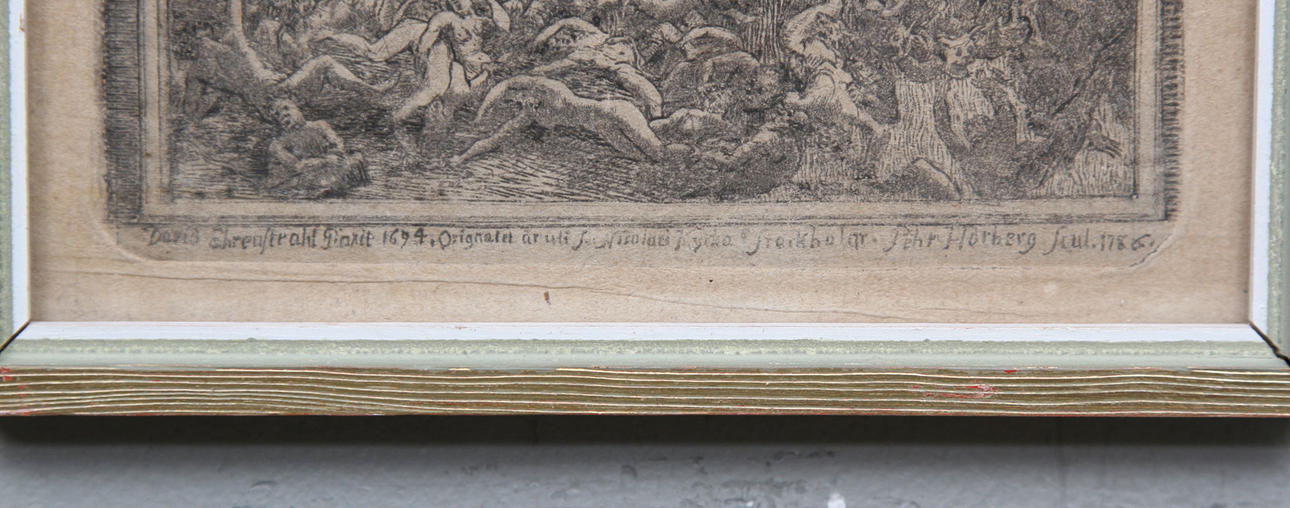 David Ehrenstrahl Pinxit 1694. Orignalet är uti S. Nicolaei Kyrka i Stockholm. Pehr Hörberg Scul. 1786.